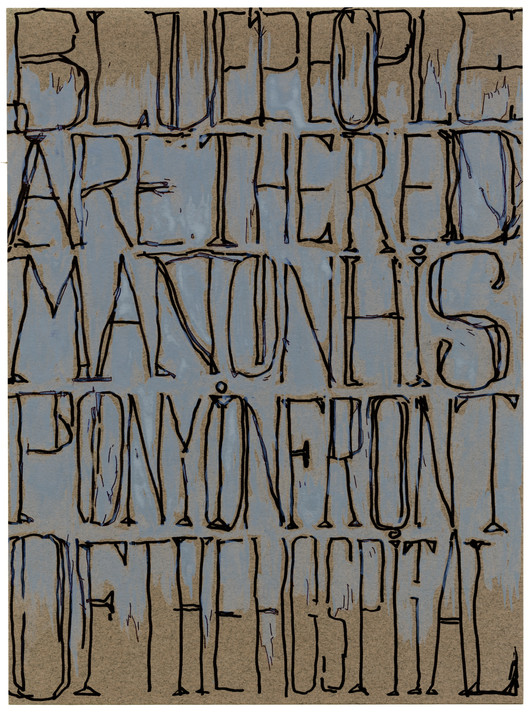 BLUE PEOPLE
ARE THE RED
MAN ON HiS
PONY iN FRONT
OF THE HOSPiTAL